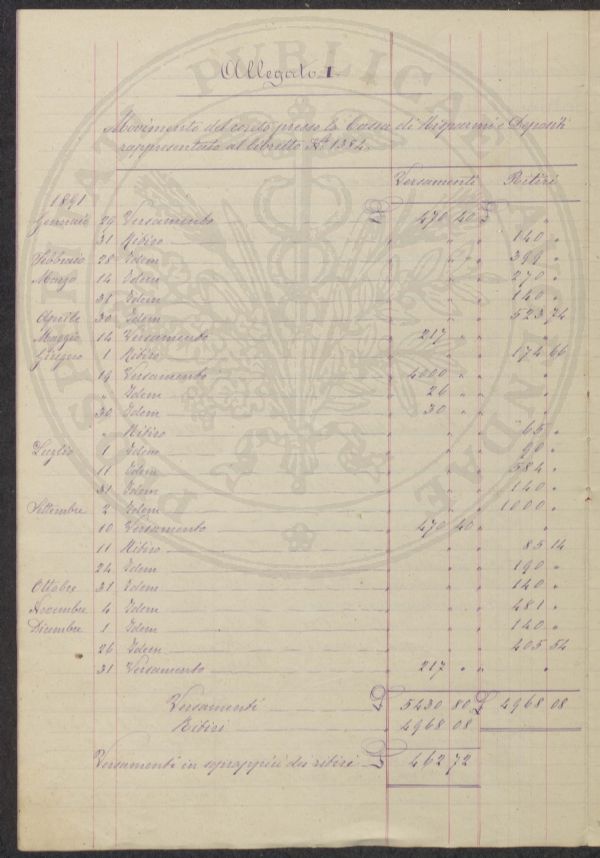 Allegato 1.
Movimento del conto presso la Cassa di Risparmi e Depositi
rappresentato al libretto N.º 1384.
Versamenti Ritiri
1891
Gennaio 26 Versamento £ 470 40 £ "
31 Ritiro " " " 140 "
Febbraio 28 Idem " " " 399 "
Marzo 14 Idem " " " 270 "
31 Idem " " " 140 "
Aprile 30 Idem " " " 523 74
Maggio 14 Versamento " 217 " " "
Giugno 1 Ritiro " " " 174 66
19 Versamento " 4000 " " "
" Idem " 26 " " "
30 Idem " 30 " " "
" Ritiro " " " 65 "
Luglio 1 Idem " " " 90 "
11 Idem " " " 584 "
31 Idem " " " 140 "
Settembre 2 Idem " " " 1000 "
10 Versamento " 470 40 " "
11 Ritiro " " " 85 14
24 Idem " " " 190 "
Ottobre 31 Idem " " " 140 "
Novembre 4 Idem " " " 481 "
Dicembre 1 Idem " " " 140 "
26 Idem " " " 405 54
31 Versamento " 217 " " "
Versamenti £ 5430 80 £ 4968 08
Ritiri " 4968 08
Versamenti in dei ritiri £ 462 72